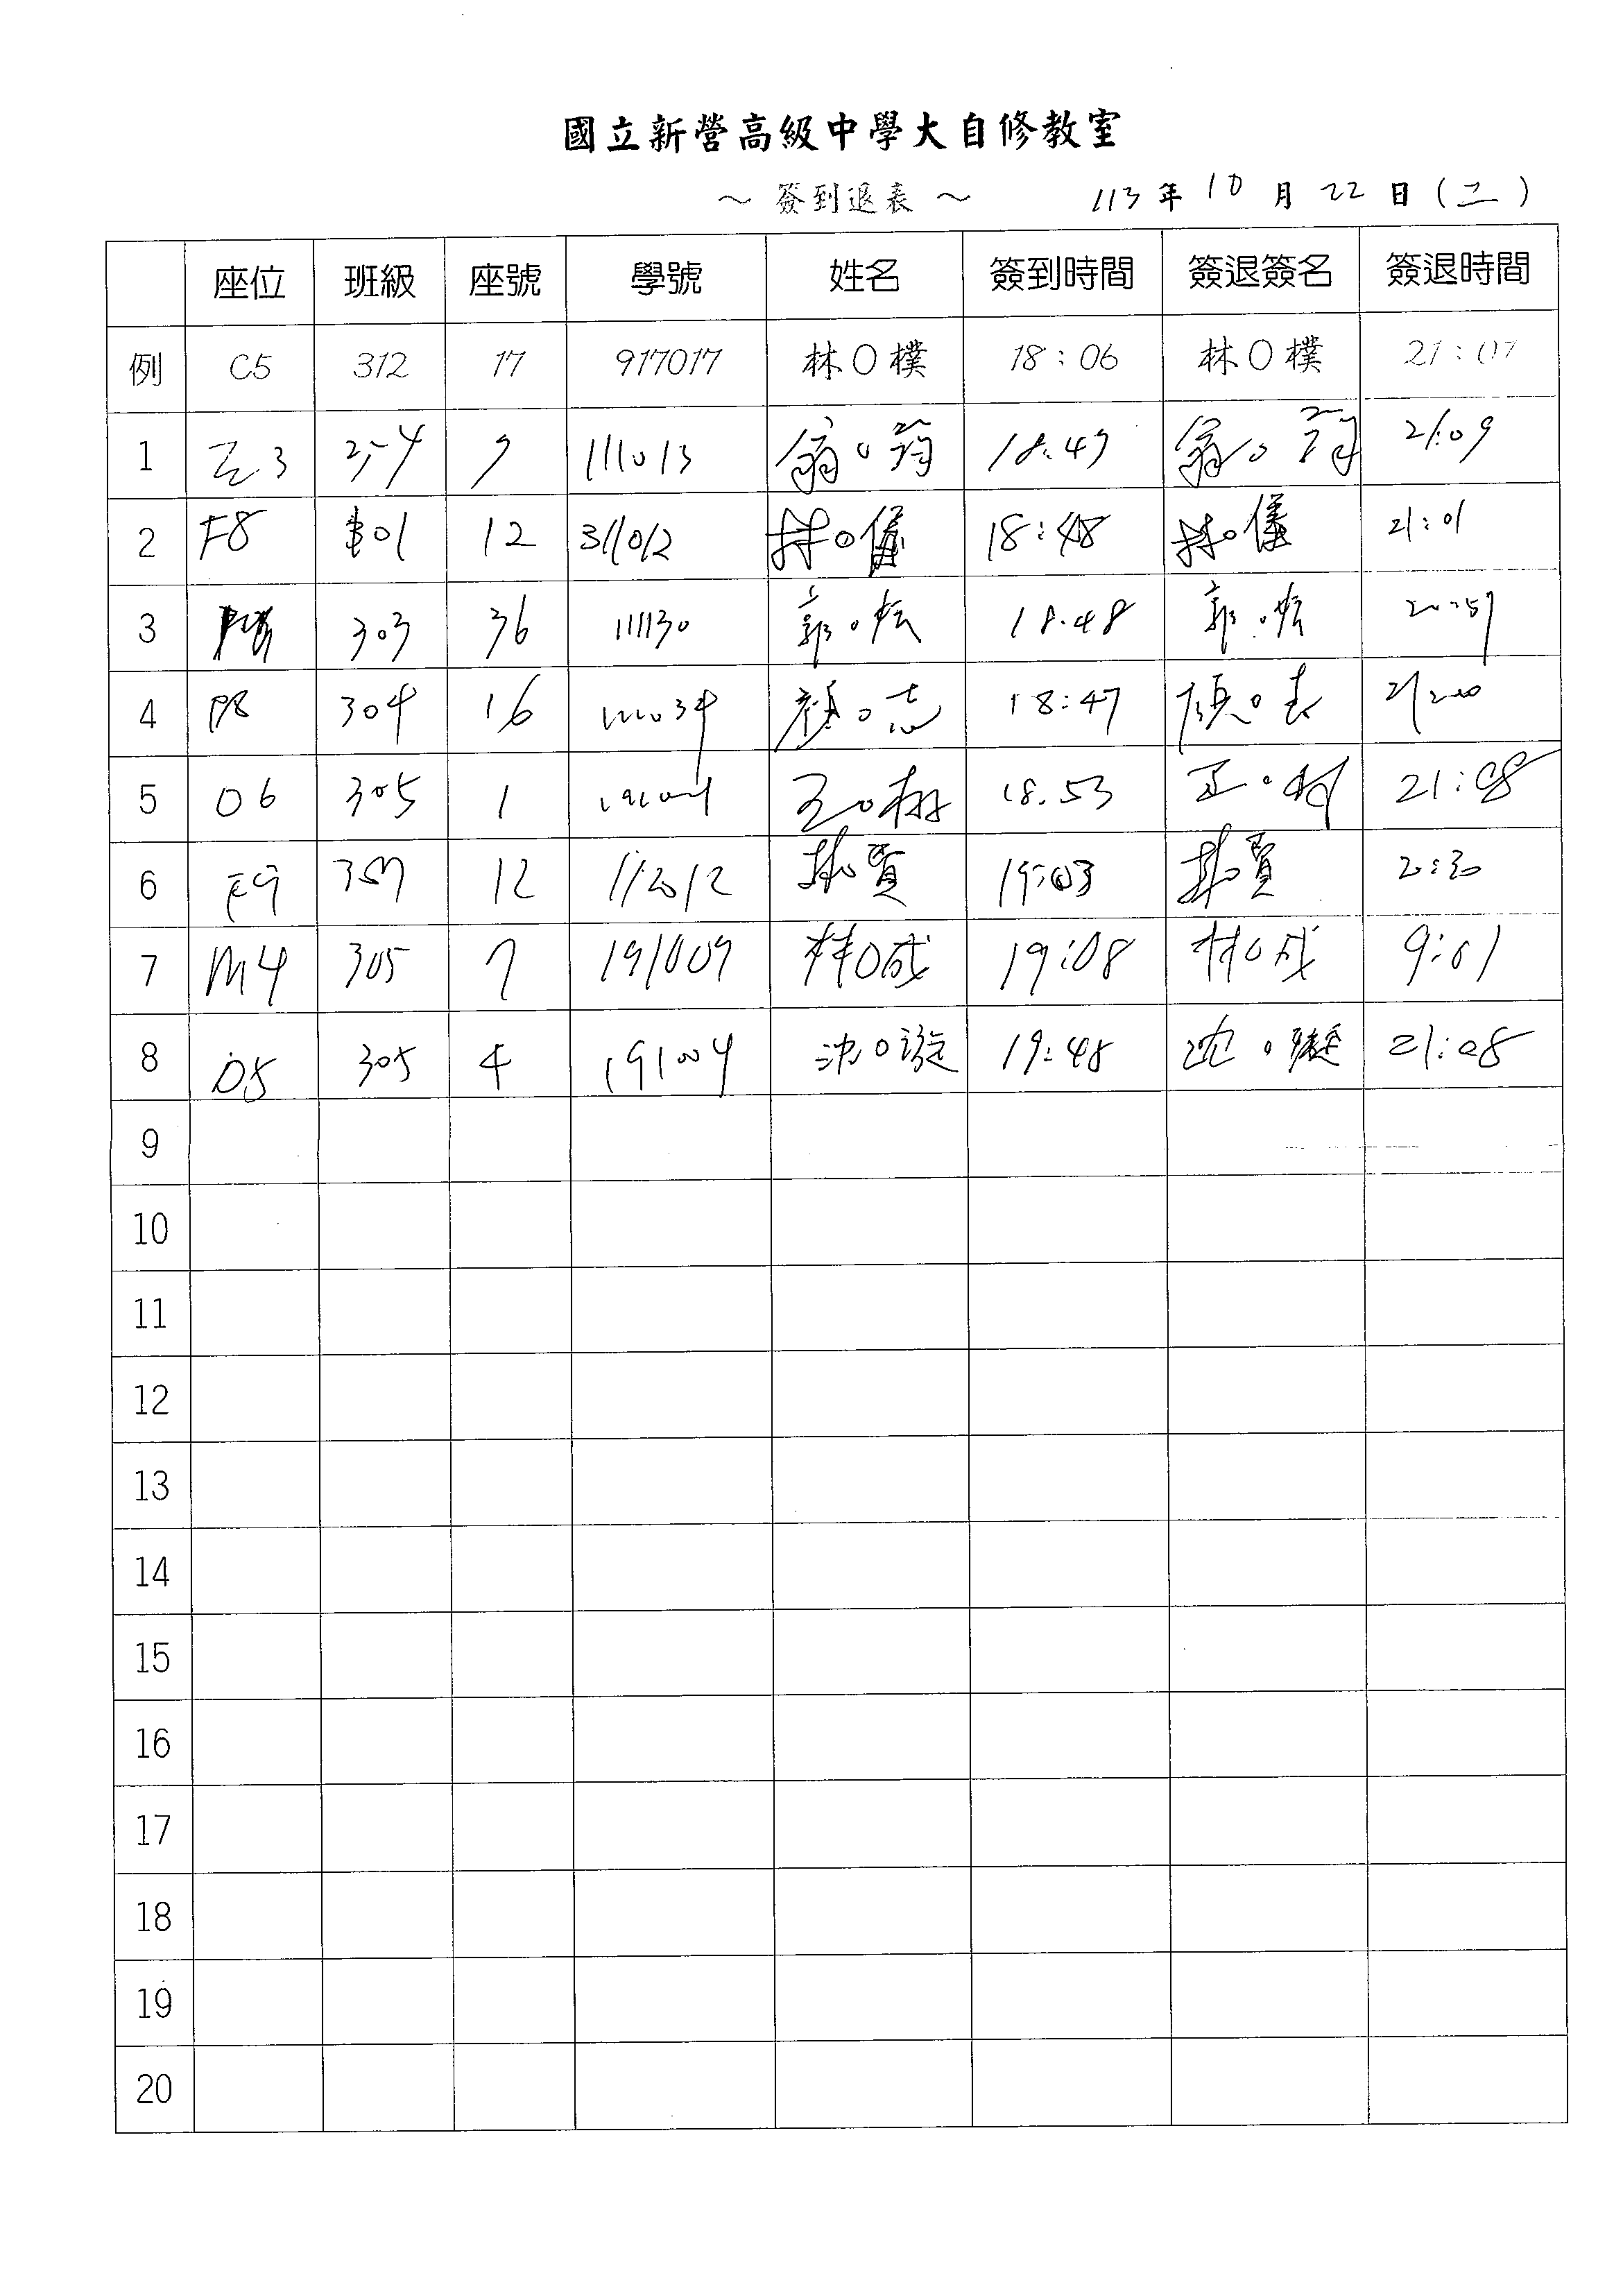 國立新營高級中學大自修教室
～ 簽到退表 ～ 113 年 10 月 22 日 (二)
座位 班級 座號 學號 姓名 簽到時間 簽退簽名 簽退時間
例 C5 312 17 917017 林O樸 18:06 林O樸 21:07
1 翁O筠 翁O 21:09
2 F8 12 311012 林O儀 18:48 林O儀 21:01
3 303 36 111130 郭O宏 18:48 郭O宏 20:57
4 P8 304 16 顏O志 18:47 顏O志
5 O6 305 1 王O 18.53 王O 21:08
6 E9 12 林O賢 19:03 林O賢
7 M4 305 7 191007 林O成 19:08 林O成 9:01
8 D5 305 4 191004 沈O 19:48 沈O 21:08
9
10
11
12
13
14
15
16
17
18
19
20